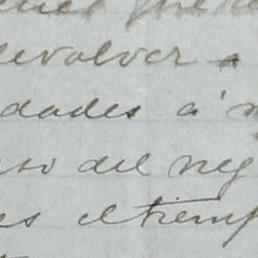 devolver a
dades á
so del neg
es el tiemp